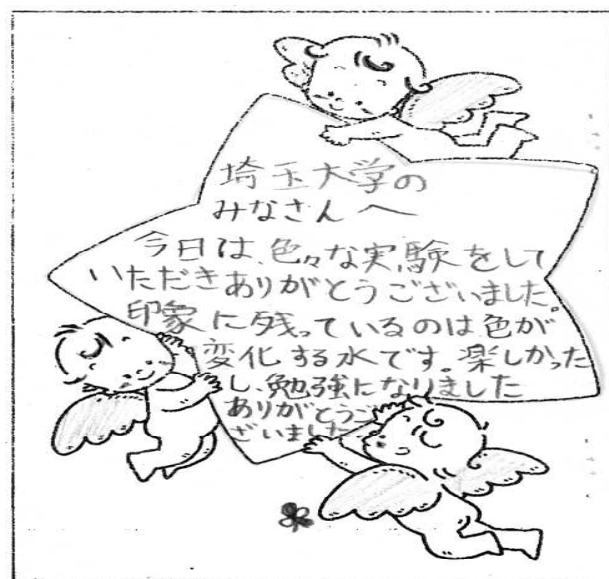 埼玉大学の
みなさんへ
今日は、色々な実験をして
いただきありがとうございました。
印象に残っているのは色が
変化する水です。楽しかった
し、勉強になりました
ありがとうご
ざいました